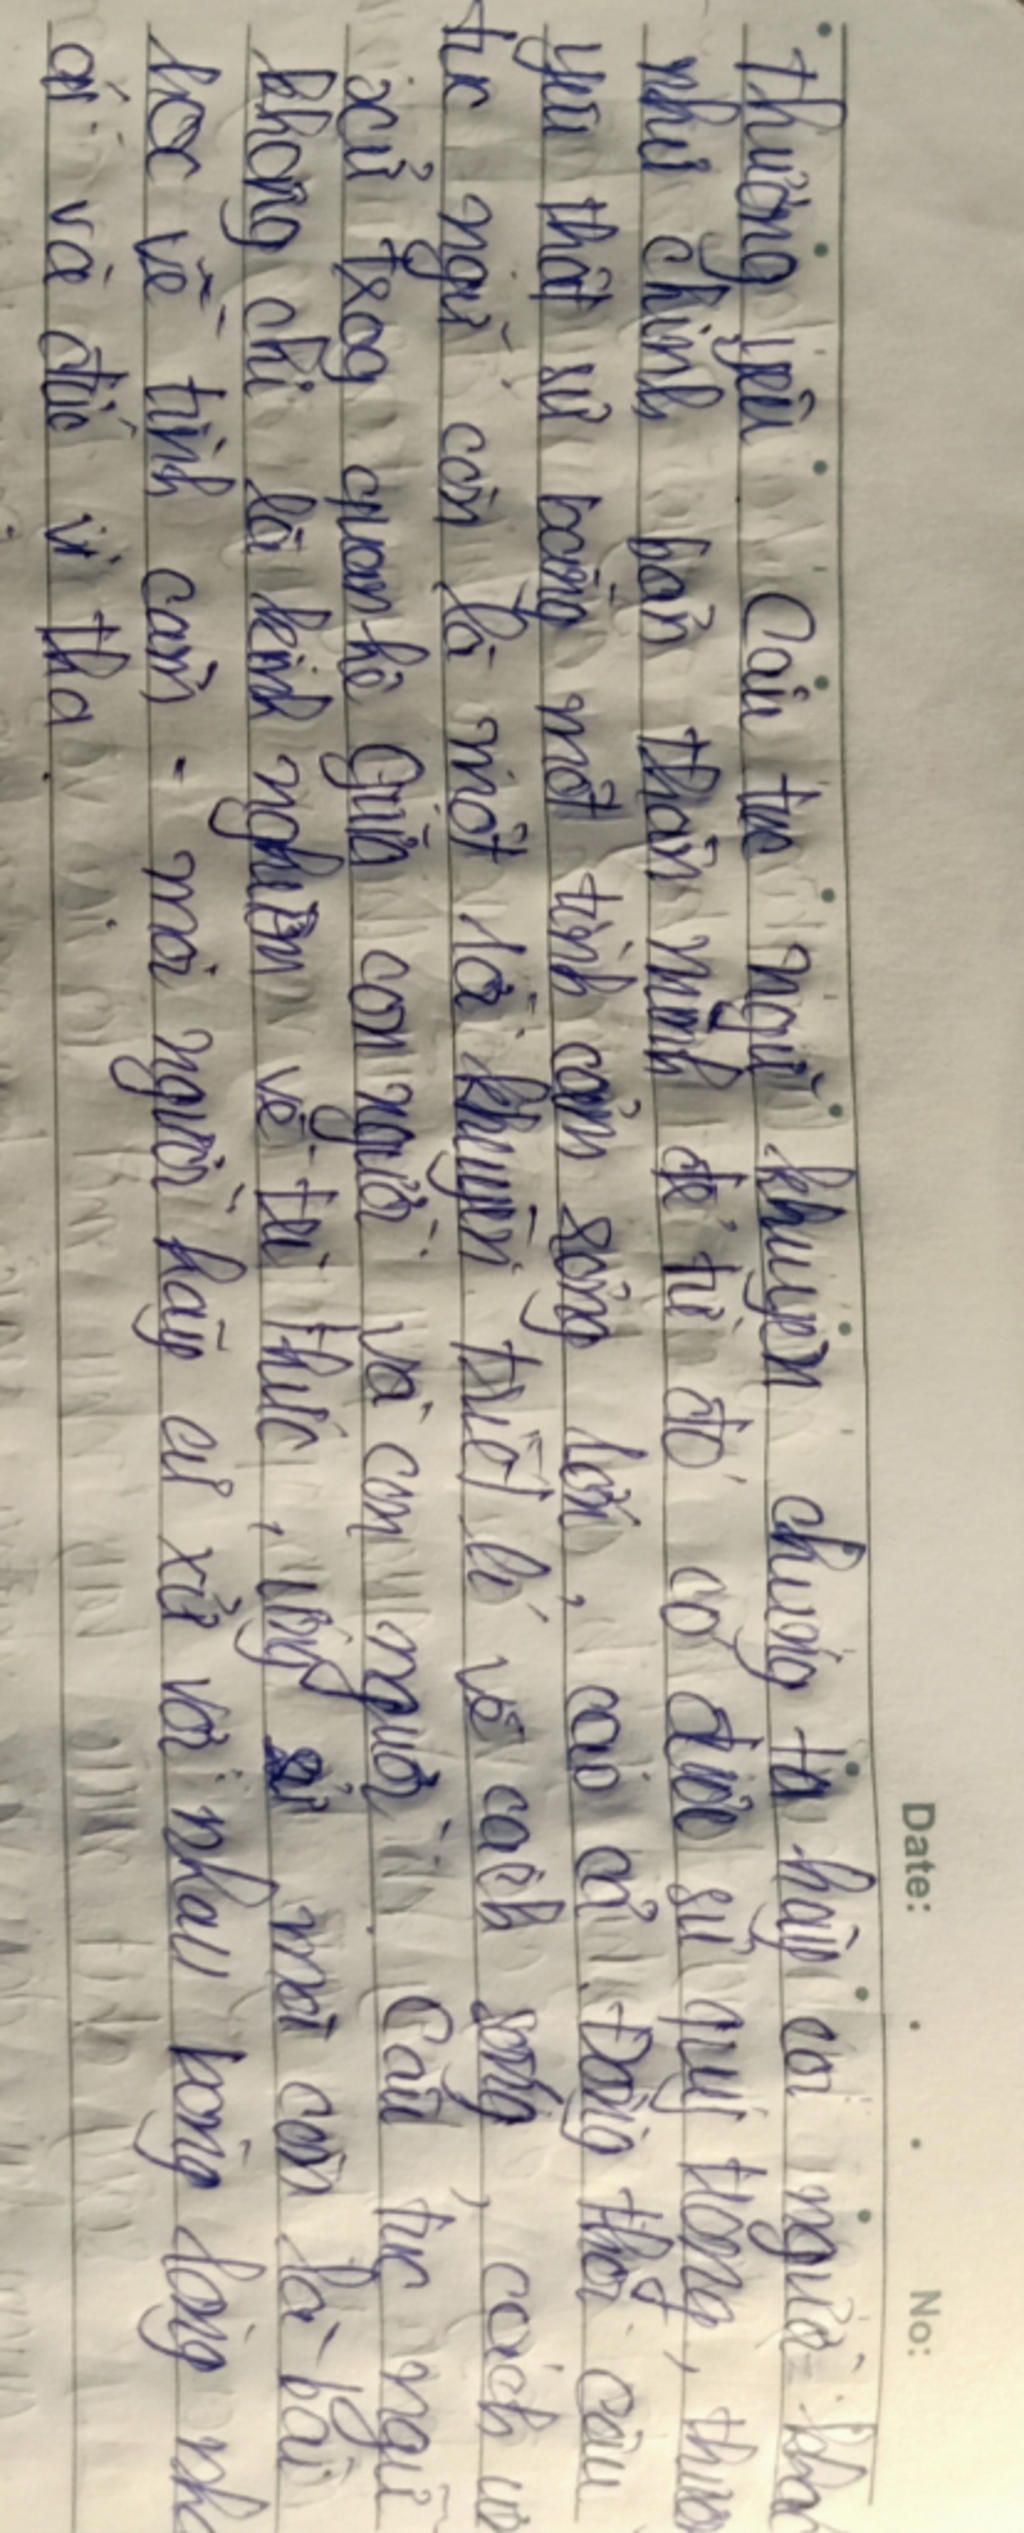 Date: No:
thường yêu Câu tục ngữ khuyên chúng ta hãy coi người khác
như chính bản thân mình để từ đó có được sự quý trọng, thươ
yêu thật sự bằng một tình cảm sống lớn, cao cả. Đồng thời câu
tục ngữ còn là một lời khuyên triết lí về cách sống, cách ứ
xử trog quan hệ Giữa con người và con người. Câu tục ngữ
không chỉ là kinh nghiệm về tri thức, ứng sử mà còn là bài
học về tình cảm - mọi người hãy cư xử với nhau bằng lòng nh
ái và đức vị tha.